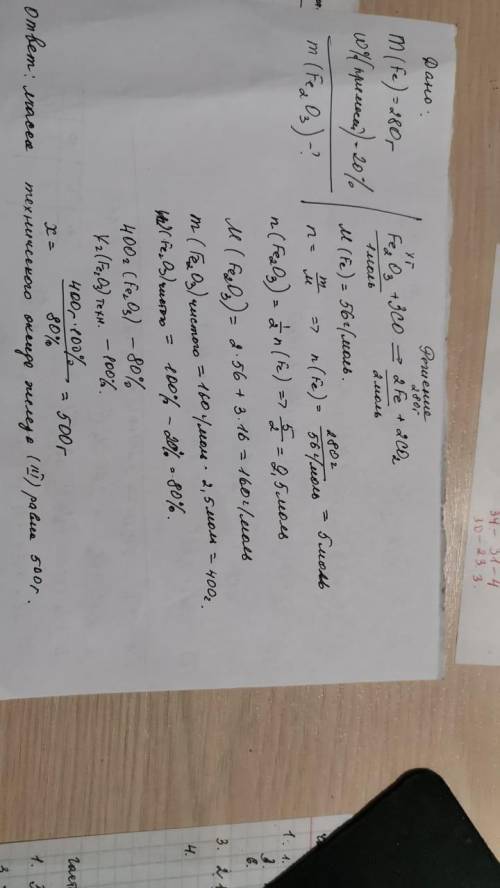 Дано:
m(Fe) = 280г
w%(примесей) = 20%
m(Fe2O3) - ?
Решение
хг 280г
Fe2O3 + 3CO = 2Fe + 2CO2
1моль 2моль
M(Fe) = 56г/моль.
n = m/M => n(Fe) = 280г/56г/моль = 5моль
n(Fe2O3) = 1/2 n(Fe) => 5/2 = 2,5моль
M(Fe2O3) = 2·56 + 3·16 = 160г/моль
m(Fe2O3)чистого = 160г/моль · 2,5моль = 400г.
(Fe2O3)чистого = 100% - 20% = 80%.
400г (Fe2O3) - 80%
Xг (Fe2O3)техн. - 100%.
x = 400г·100%/80% = 500г
Ответ: масса технического оксида железа (III) равна 500г.
34 - 31 - 4
30 - 23. 3.
1. 1.
в.
3. 2
4.
1.